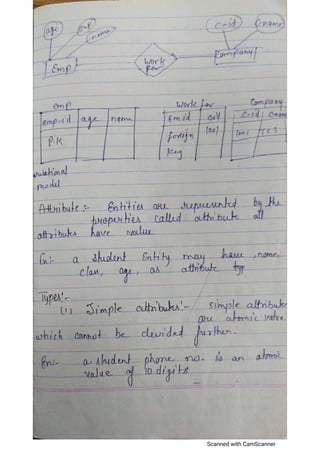 age e-p name c-id cname
Emp work for Company
emp work for Company
Emp-id age name Em id c-id C-id Cnam
P.K foreign key 1001 1001 TCS
relational
model
Attribute :- Entities are represented by the
properties called attribute all
attributes have value
Ex:- a student Entity may have , name,
clas, age, as attribute typ
Types:-
(1) Simple attributes:- simple attribute
are atomic value
which cannot be devided further.
Ex:- a student phone no. is an atomic
value of 10 digits
Scanned with CamScanner